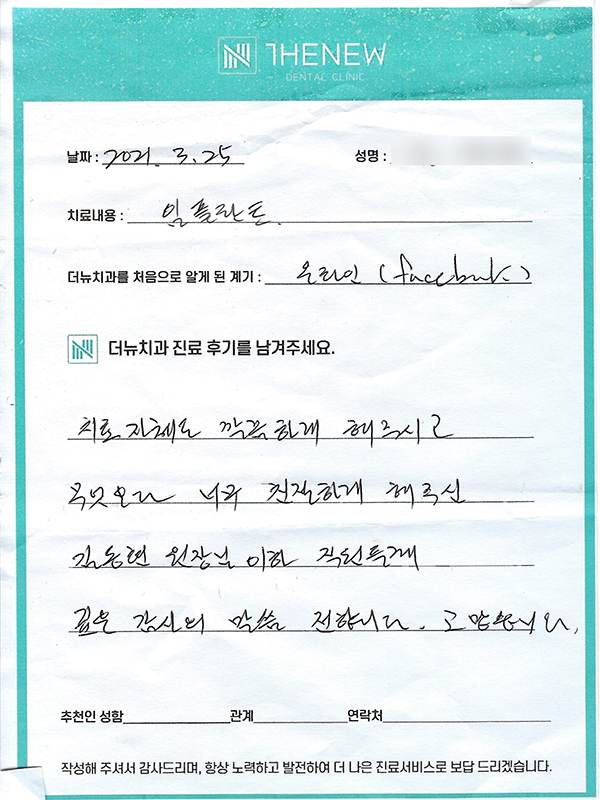 THENEW
DENTAL CLINIC
날짜 : 2021. 3. 25 성명 :
치료내용 : 임플란트
더뉴치과를 처음으로 알게 된 계기 : 온라인 (facebook)
더뉴치과 진료 후기를 남겨주세요.
치료 자체도 깍끔하게 해주시고
무엇보다 너무 친절하게 해주신
김동현 원장님 이하 직원들께
깊은 감사의 말씀 전합니다. 고맙습니다.
추천인 성함 관계 연락처
작성해 주셔서 감사드리며, 항상 노력하고 발전하여 더 나은 진료서비스로 보답 드리겠습니다.